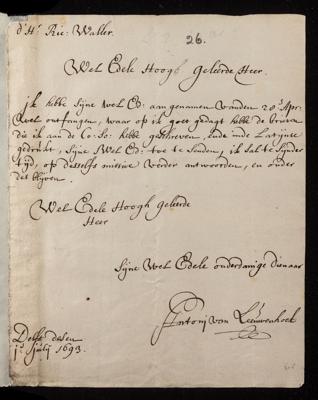 d'Hr. Ric: Waller.
26.
Wel Edele Hoogh Geleerde Heer.
ik hebbe Sijne wel Ed: aangenamen vanden 20e Apr.
wel ontfangen, waar op ik goet gedagt hebbe de brieven
die ik aan de Co: So: hebbe geschreven, ende inde Latijnse
gedrukt, Sijne Wel Ed: toe te senden, ik sal te Sijnder
tijd, op desselfs missive verder antwoorden, en onder
des blijven.
Wel Edele Hoogh geleerde
Heer
Sijne Wel Edele onderdanige dienaar
Antonj van Leeuwenhoek
Delft desen
1e julij 1693.